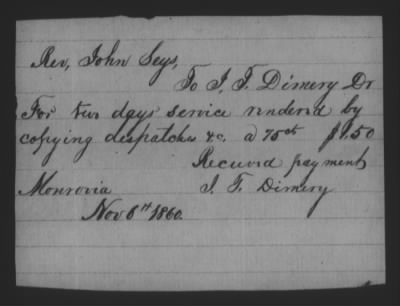 Rev, John Seys,
To J. F. Dimery Dr
For two days service rendered by
copying despatches &c. @ 75cts $1.50
Received payment
Monrovia J. F. Dimery
Nov 6th 1860.